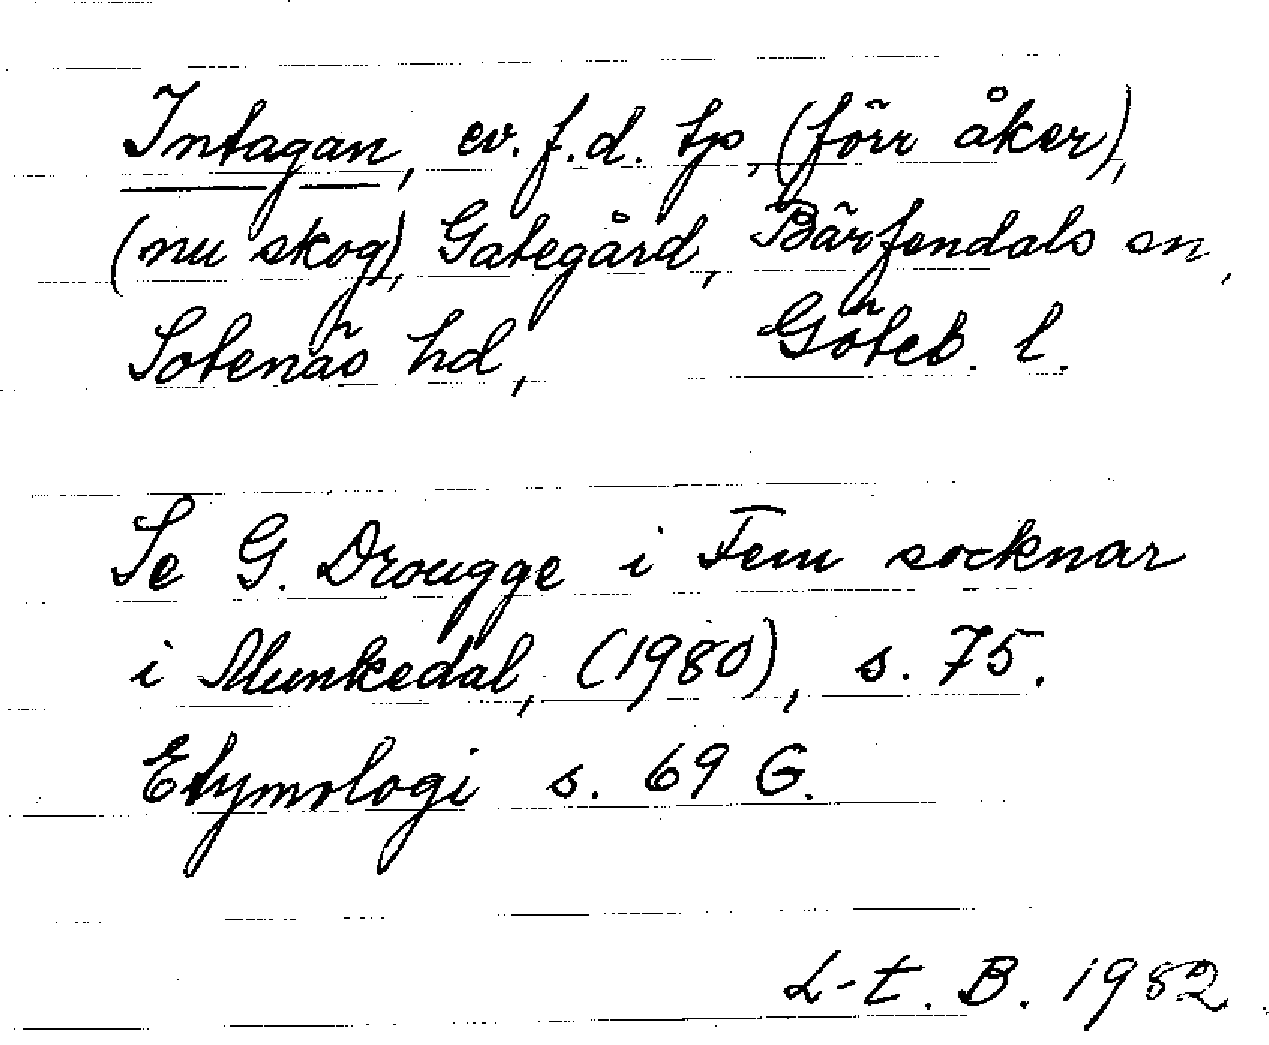 Intagan, ev. f.d. tp, (förr åker),
(nu skog), Gategård, Bärfendals sn,
Sotenäs hd, Göteb. l.
Se G. Drougge i Fem socknar
i Munkedal, (1980), s. 75.
Etymologi s. 69 G.
L-t. B. 1982